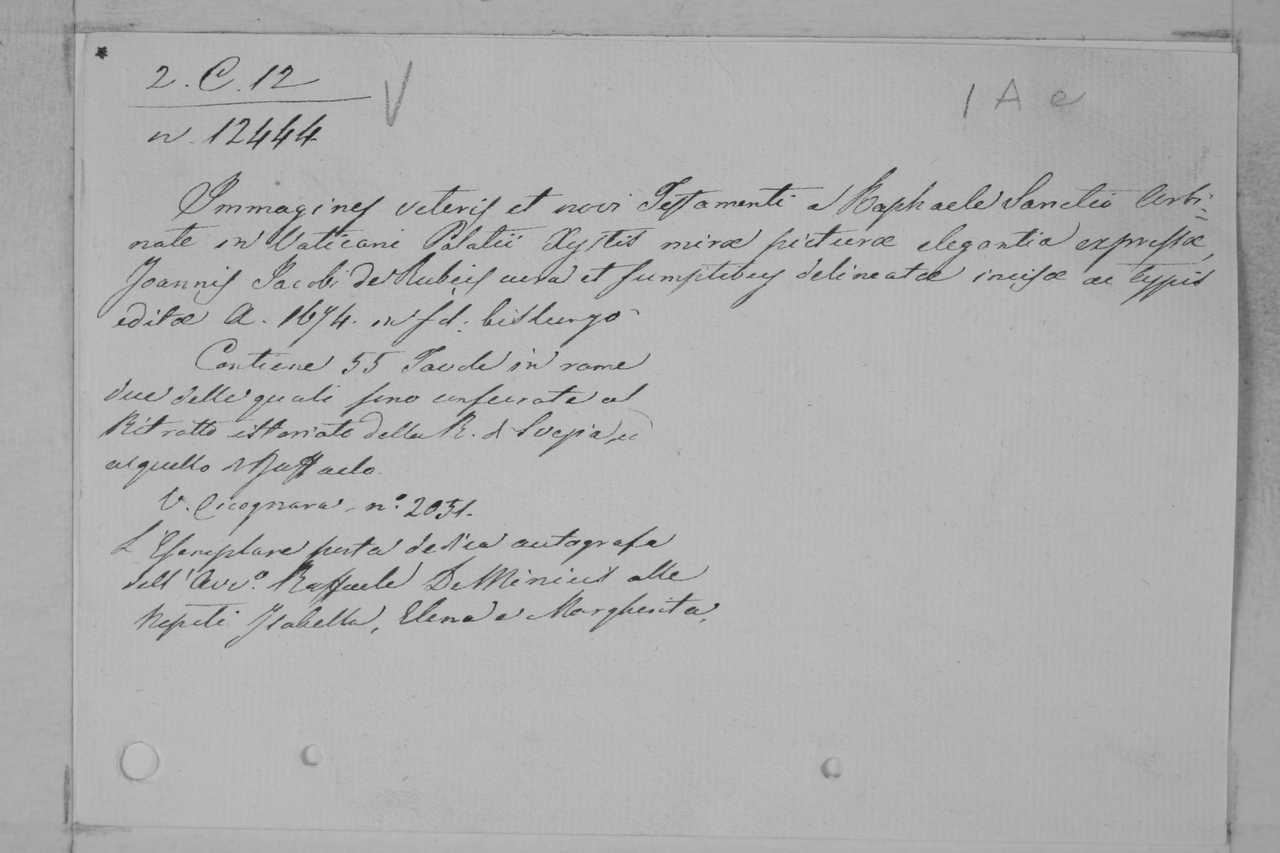 *
2. C. 12
V
1 A e
n. 12444
Immagines veteris et novi Testamenti a Raphaele Sanctio Urbi=
nate in Vaticani Palatii Xystis miræ picturæ elegantia expressæ,
Joannis Jacobi de Rubeis cura et sumptibus delineatæ incisæ ac typis
editæ A. 1674. in fol: bislungo
Contiene 55 Tavole in rame
due delle quali sono consecrate al
Ritratto istoriato della R. di Svezia, ed
a quello di Raffaelo.
V. Cicognara n.º 2051.
L'Esemplare porta dedica autografa
dell'Avv.º Raffaele De Minicis alle
Nepoti Isabella, Elena e Margherita.